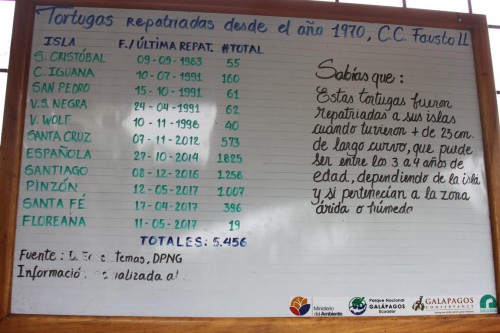 Tortugas repatriadas desde el año 1970, C.C. Fausto Ll
ISLA F./ÚLTIMA REPAT. #TOTAL
S. CRISTÓBAL 09-09-1983 55
C. IGUANA 10-07-1991 160
SAN PEDRO 15-10-1991 61
V.S. NEGRA 24-04-1991 62
V. WOLF 10-11-1996 40
SANTA CRUZ 07-11-2012 573
ESPAÑOLA 27-10-2014 1825
SANTIAGO 08-12-2016 1.258
PINZÓN 12-05-2017 1.007
SANTA FÉ 17-04-2017 396
FLOREANA 11-05-2017 19
TOTALES: 5.456
Fuente: temas, DPNG
Informació alizada al
Sabías que:
Estas tortugas fueron
repatriadas a sus islas
cuando tuvieron + de 23 cm.
de largo curvo, que puede
ser entre los 3 a 4 años de
edad, dependiendo de la isla
y si pertenecían a la zona
árida o húmeda
Ministerio del Ambiente
Parque Nacional GALÁPAGOS Ecuador
GALAPAGOS CONSERVANCY